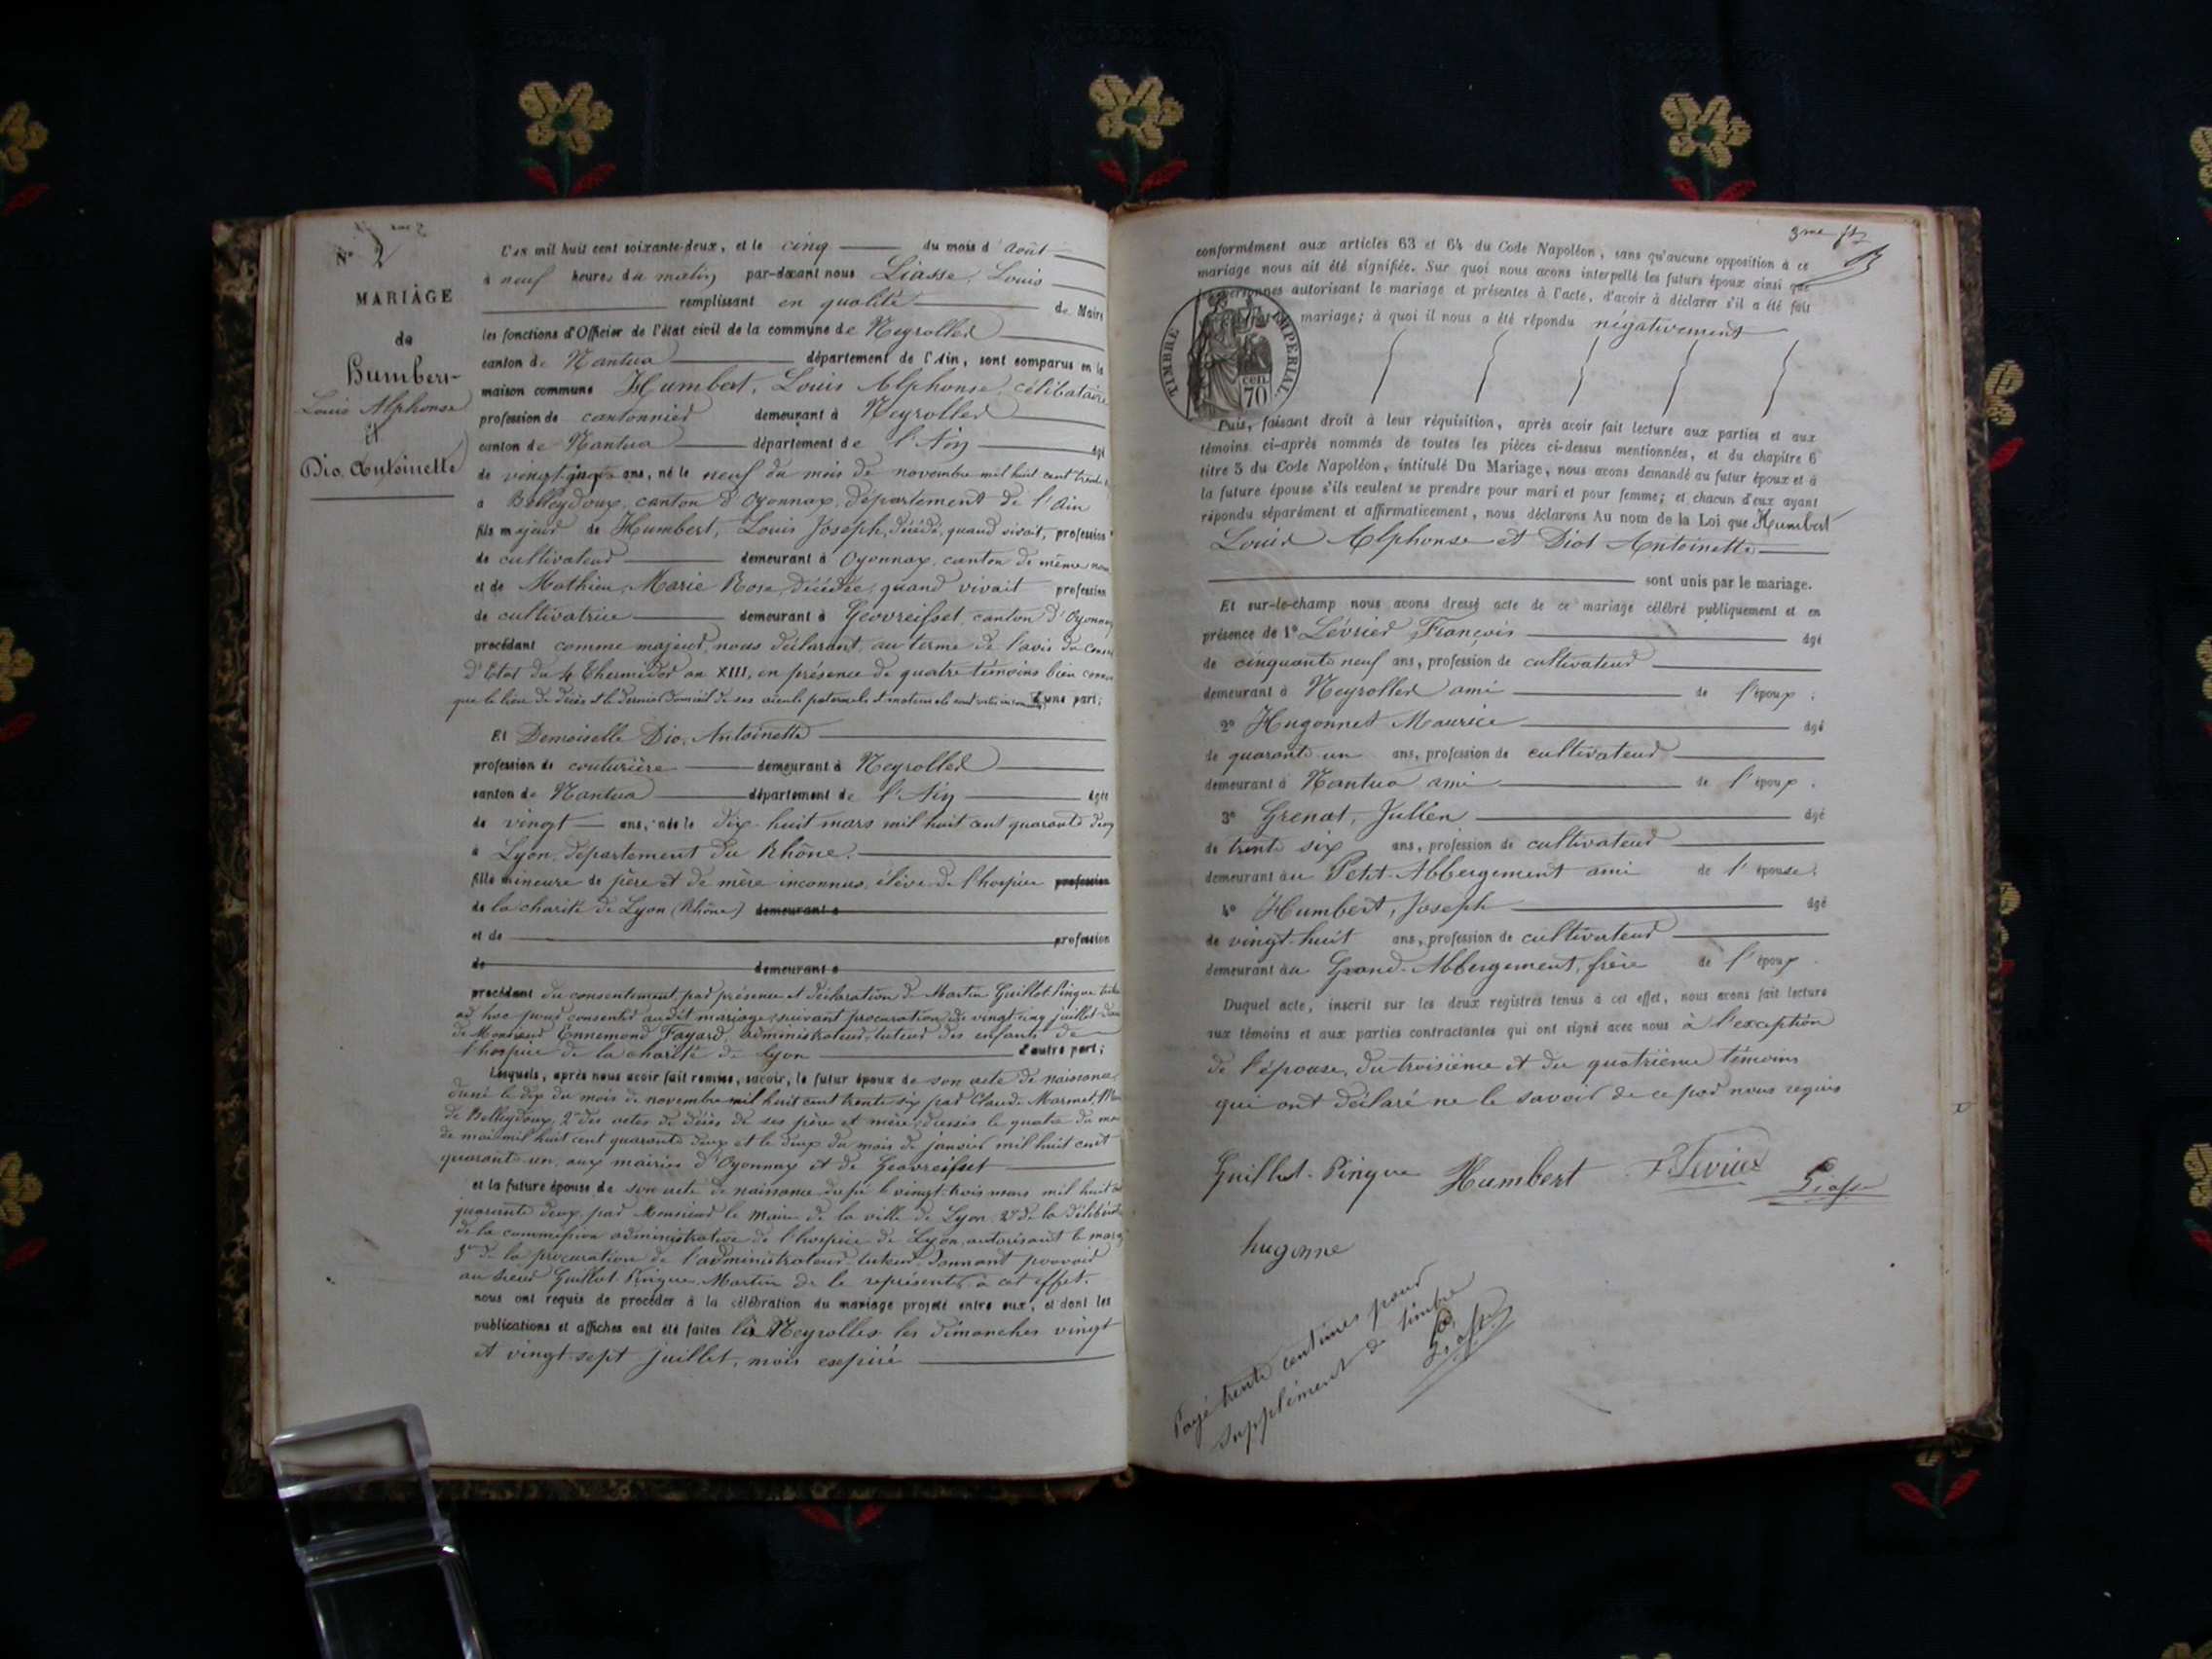 N° 2
MARIAGE
de
Humbert
Louis Alphonse
et
Dio, Antoinette
L'an mil huit cent soixante-deux, et le cinq du mois d'août
à neuf heures du matin par-devant nous Liasse, Louis
remplissant en qualité de Maire
les fonctions d'Officier de l'état civil de la commune de Neyrolles
canton de Nantua département de l'Ain, sont comparus en la
maison commune Humbert, Louis Alphonse, célibataire
profession de cantonnier demeurant à Neyrolles
canton de Nantua département de l'Ain âgé
de vingt ans, né le neuf du mois de novembre mil huit cent trente
à Belleydoux, canton d'Oyonnax, département de l'Ain
fils majeur de Humbert, Louis Joseph, décédé, quand vivait, profession
de cultivateur demeurant à Oyonnax, canton de même nom
et de Mathieu, Marie Rose, décédée, quand vivait profession
de cultivatrice demeurant à Géovreisset, canton d'Oyonnax
procédant comme majeur, nous déclarant, au terme de l'avis du conseil
d'Etat du 4 Thermidor an XIII, en présence de quatre témoins bien
que le lieu de décès et le dernier domicile de ses aieuls paternels et maternels sont d'une part;
Et Demoiselle Dio, Antoinette
profession de couturière demeurant à Neyrolles
canton de Nantua département de l'Ain âgée
de vingt ans, née le dix-huit mars mil huit cent quarante deux
à Lyon, département du Rhône.
fille mineure de père et de mère inconnus, élève de l'hospice profession
de la charité de Lyon (Rhône) demeurant à
et de profession
de demeurant à
procédant du consentement, par présence et déclaration de Martin Guillot-Pingue tuteur
ad hoc pour consentir audit mariage, suivant procuration du vingt-cinq juillet
de Monsieur Ennemond Fayard, administrateur, tuteur des enfants de
l'hospice de la charité de Lyon d'autre part;
Lesquels, après nous avoir fait remise, savoir, le futur époux de son acte de naissance
dressé le dix du mois de novembre mil huit cent trente six par Claude Marmet,
de Belleydoux, 2° des actes de décès de ses père et mère, dressés le quatre du mois
de mai mil huit cent quarante deux et le deux du mois de janvier mil huit cent
quarante-un, aux mairies d'Oyonnax et de Géovreisset
et la future épouse de son acte de naissance dressé le vingt-trois mars mil huit cent
quarante deux, par Monsieur le Maire de la ville de Lyon, 2° de la délibération
de la commission administrative de l'hospice de Lyon, autorisant le mariage
3° de la procuration de l'administrateur-tuteur, donnant pouvoir
au sieur Guillot-Pingue, Martin de le représenter à cet effet.
nous ont requis de procéder à la célébration du mariage projeté entre eux, et dont les
publications et affiches ont été faites à Neyrolles les dimanches vingt
et vingt-sept juillet, mois expiré
3me
conformément aux articles 63 et 64 du Code Napoléon, sans qu'aucune opposition à ce
mariage nous ait été signifiée. Sur quoi nous avons interpellé les futurs époux ainsi que
les personnes autorisant le mariage et présentes à l'acte, d'avoir à déclarer s'il a été fait
mariage; à quoi il nous a été répondu négativement
TIMBRE IMPERIAL
70 cen.
Puis, faisant droit à leur réquisition, après avoir fait lecture aux parties et aux
témoins ci-après nommés de toutes les pièces ci-dessus mentionnées, et du chapitre 6
titre 5 du Code Napoléon, intitulé Du Mariage, nous avons demandé au futur époux et à
la future épouse s'ils veulent se prendre pour mari et pour femme; et chacun d'eux ayant
répondu séparément et affirmativement, nous déclarons Au nom de la Loi que Humbert
Louis Alphonse et Diot Antoinette
sont unis par le mariage.
Et sur-le-champ nous avons dressé acte de ce mariage célébré publiquement et en
présence de 1° Lévrier, François âgé
de cinquante neuf ans, profession de cultivateur
demeurant à Neyrolles ami de l'époux.
2° Hugonnet Maurice âgé
de quarante un ans, profession de cultivateur
demeurant à Nantua ami de l'époux.
3° Grenat, Jullien âgé
de trente six ans, profession de cultivateur
demeurant au Petit-Abbergement ami de l'épouse.
4° Humbert, Joseph âgé
de vingt-huit ans, profession de cultivateur
demeurant au Grand-Abbergement, frère de l'époux.
Duquel acte, inscrit sur les deux registres tenus à cet effet, nous avons fait lecture
aux témoins et aux parties contractantes qui ont signé avec nous à l'exception
de l'épouse, du troisième et du quatrième témoins
qui ont déclaré ne le savoir de ce par nous requis
Guillot-Pingue Humbert F. Levrier Liasse
hugonne
Payé trente centimes pour
supplément de timbre
Liasse